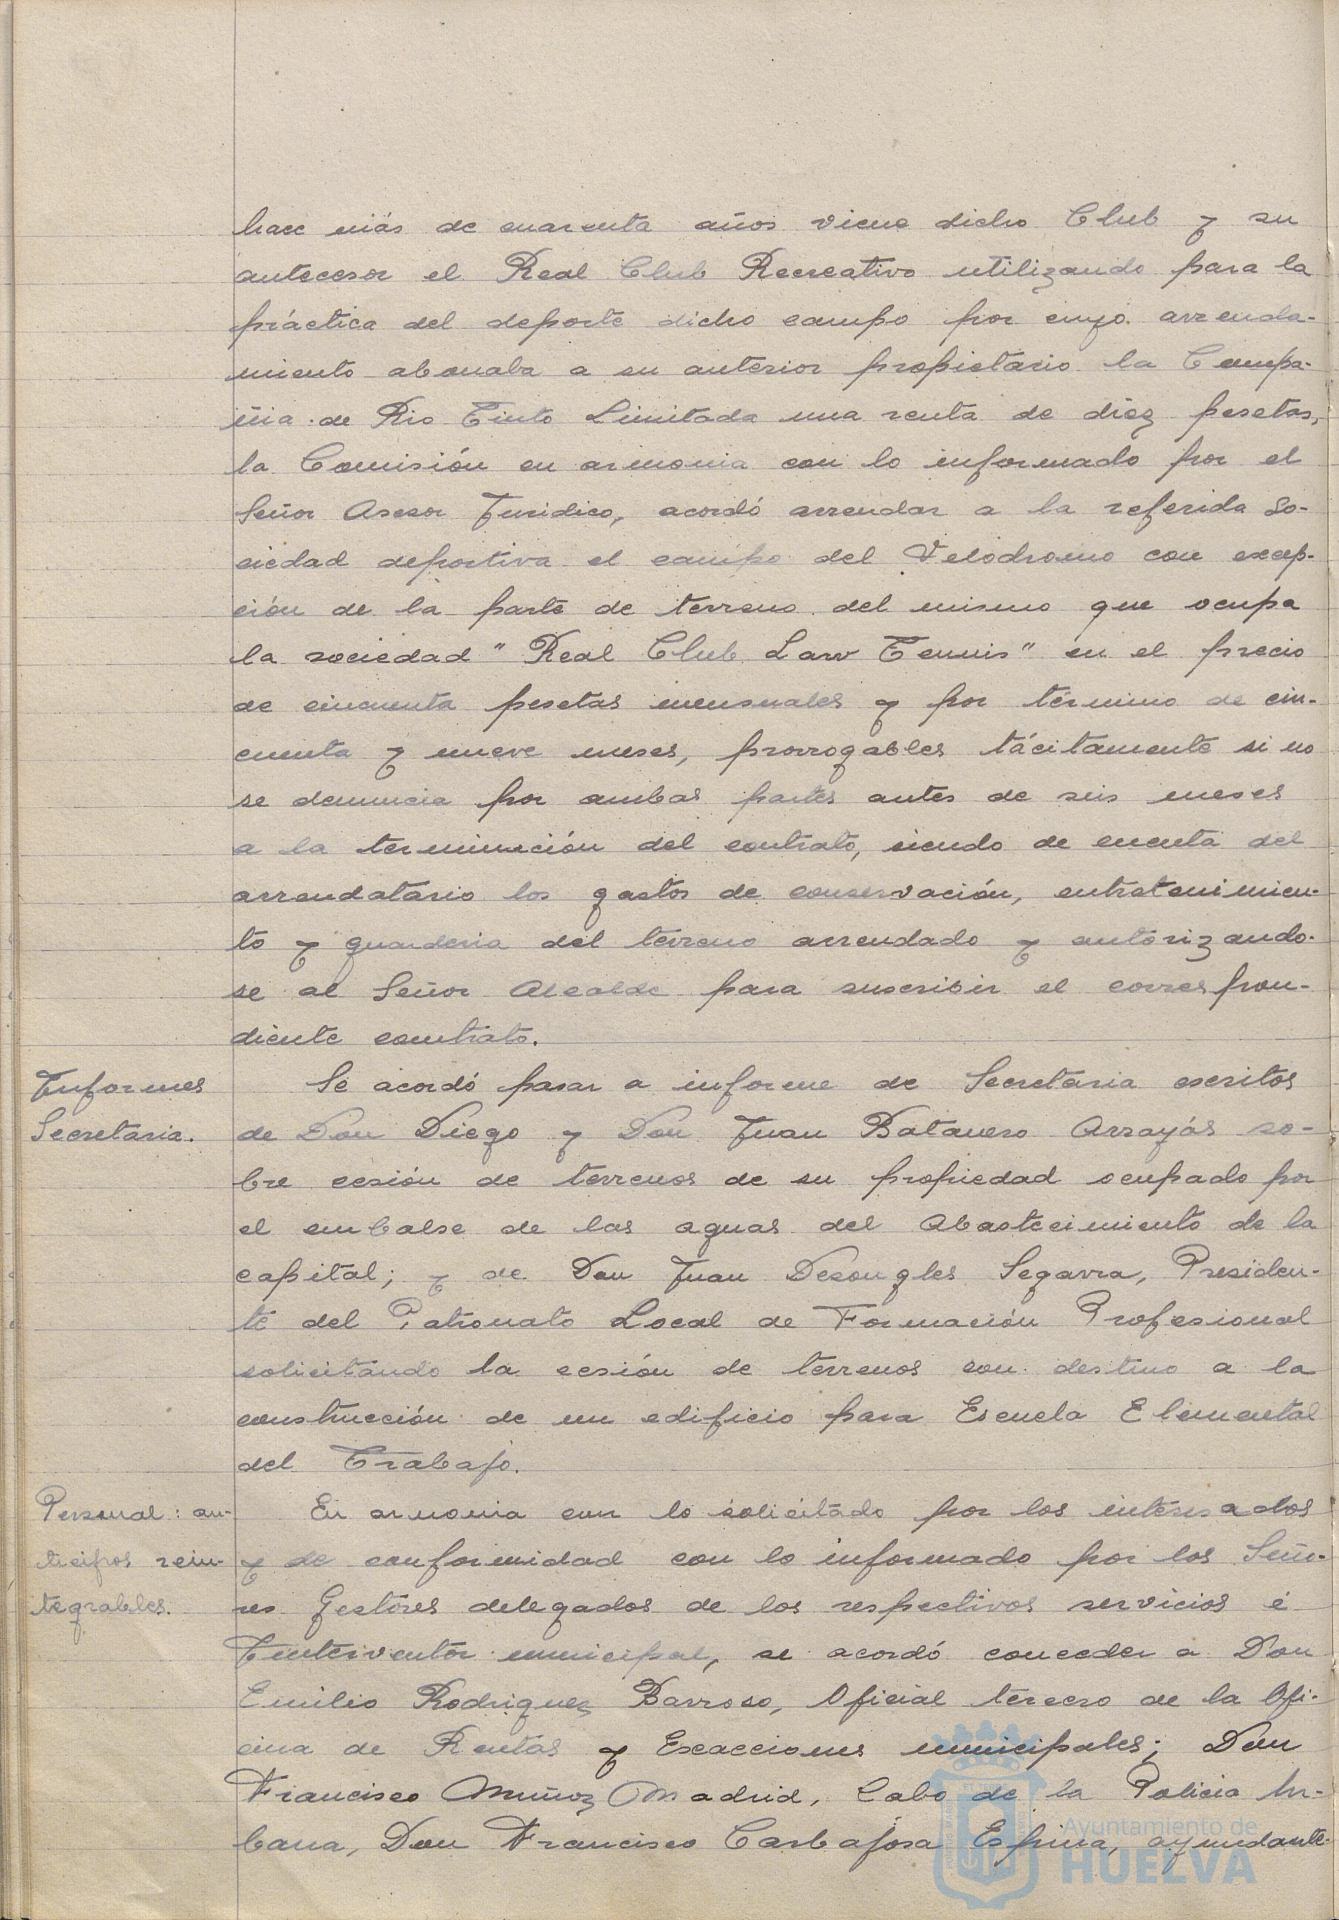 hace más de cuarenta años viene dicho Club y su
antecesor el Real Club Recreativo utilizando para la
práctica del deporte dicho campo por cuyo arrenda-
miento abonaba a su anterior propietario la Compa-
ñia de Rio Tinto Limitada una renta de diez pesetas,
la Comisión en armonia con lo informado por el
Señor Asesor Juridico, acordó arrendar a la referida So-
ciedad deportiva el campo del Velodromo con excep-
ción de la parte de terreno del mismo que ocupa
la sociedad "Real Club Law Tennis" en el precio
de cincuenta pesetas mensuales y por término de cin-
cuenta y nueve meses, prorrogables tácitamente si no
se denuncia por ambas partes antes de seis meses
a la terminación del contrato, siendo de cuenta del
arrendatario los gastos de conservación, entretenimien-
to y guarderia del terreno arrendado y autorizando-
se al Señor Alcalde para suscribir el correspon-
diente contrato.
Informes
Secretaria.
Se acordó pasar a informe de Secretaria escritos
de Don Diego y Don Juan Batanero Arrayás so-
bre cesión de terrenos de su propiedad ocupado por
el embalse de las aguas del Abastecimiento de la
capital; y de Don Juan Desongles Segarra, Presiden-
te del Patronato Local de Formación Profesional
solicitando la cesión de terrenos con destino a la
construcción de un edificio para Escuela Elemental
del Trabajo.
Personal: an-
ticipos rein-
tegrables.
En armonia con lo solicitado por los interesados
y de conformidad con lo informado por los Seño-
res Gestores delegados de los respectivos servicios é
Interventor municipal, se acordó conceder a Don
Emilio Rodriguez Barroso, Oficial tercero de la Ofi-
cina de Rentas y Exacciones municipales; Don
Francisco Muñoz Madrid, Cabo de la Policia Ur-
bana, Don Francisco Carbajosa Espina, ayudante
Ayuntamiento de
HUELVA